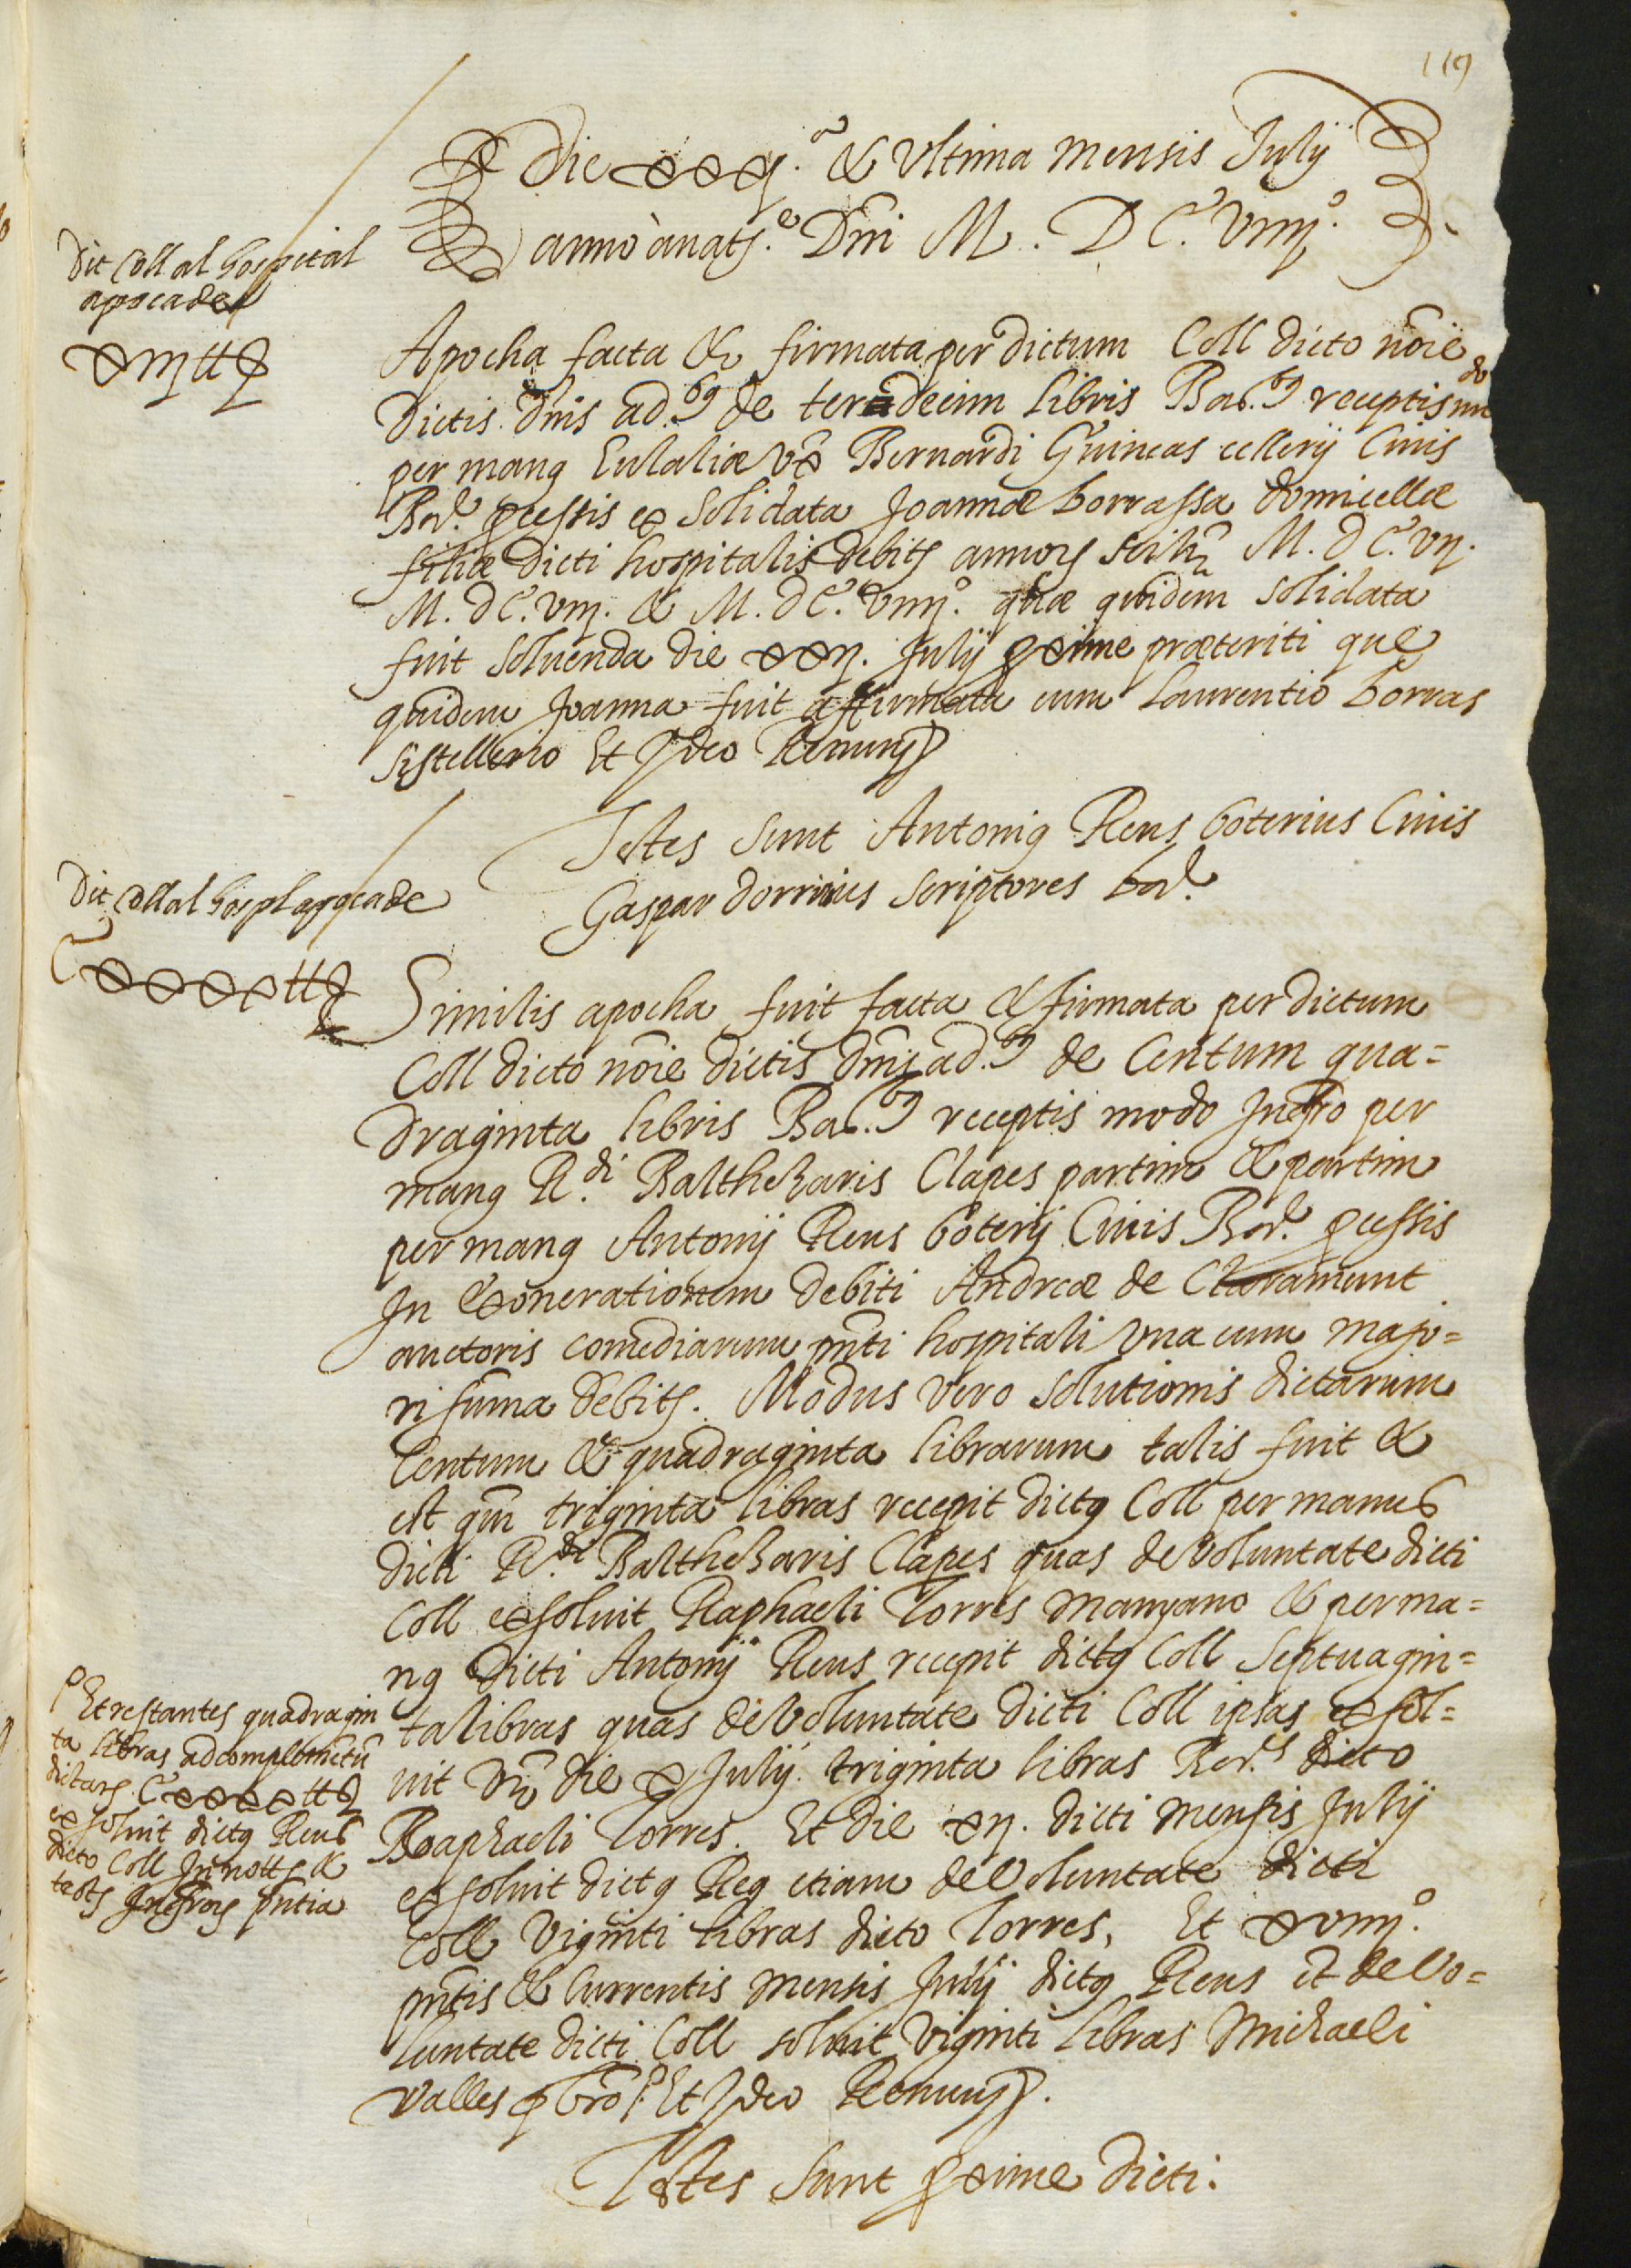 119
Die xxxj.ª & Ultima mensis Julij
anno à natj.e Dñi M. DC. viiij.º
Dit Coll al hospital
apoca de
xiij ll ꝭ
Apocha facta & firmata per dictum Coll dicto nõie
dictis dñis ad.bꝰ de terdecim libris Bar.bꝰ receptis mo
do
per manꝰ Eulaliæ vx Bernardi Guineas celler ij Civis
Bar.e ꝓcessis ex Solidata Joannæ borrassa domicellæ
filiæ dicti hospitalis debitꝭ annorꝝ scilt M. dC. vij.
M. dC. viij. & M. dC. viiij.º quæ quidem solidata
fuit solvenda die xxij. Julij ꝓxime præteriti que
quidem Joanna fuit affirmata cum Laurentio borras
sistellerio Et Ideo Renunꝭ
Testes sunt Antoniꝰ Reus boterius Civis
Gaspar dorrius scriptores bar.e
Dit Coll al hospl apoca de
Cxxxx ll ꝭ
Similis apocha fuit facta & firmata per dictum
Coll dicto nõie dictis dñis ad.bꝰ de Centum qua=
draginta libris Bar.bꝰ receptis modo Infro per
manꝰ R.di Baltheзaris Clapes partim & partim
per manꝰ Antonij Reus boterij Civis Bar.e ꝓcessis
In Exonerationem debiti Andreæ de Claramunt
auctoris comediarum pñti hospitali Una cum majo=
ri sũma debitꝭ. Modus vero solutionis dictarum
Centum & quadraginta librarum talis fuit &
est qm triginta libras recepit dictꝰ Coll per manus
dicti R.di Baltheзaris Clapes quas de Voluntate dicti
Coll exsolvit Raphaeli Torres manyano & per ma=
nꝰ dicti Antonij Reus recepit dictꝰ Coll Septuagin=
ta libras quas de Voluntate dicti Coll ipsas exsol=
vit Vo die xj Julij triginta libras Bar.s dicto
Raaphaeli Torres. Et die xij. dicti mensis Julij
exsolvit dictꝰ Reꝰ etiam de Voluntate dicti
Coll Viginti libras dicto Torres, Et xviiij.º
pñtis & Currentis mensis Julij dictꝰ Reus et de Vo=
luntate dicti Coll solvit Viginti libras Michaeli
Valles ꝓbro Et Ideo Renunꝭ.
Et restantes quadragin
ta libras ad complimẽtũ
dictarꝝ Cxxxx ll ꝭ
exsolvit dictꝰ Reus
dicto Coll In notꝭ &
testꝭ Infrorꝝ pñtia
Testes sunt ꝓxime dicti.